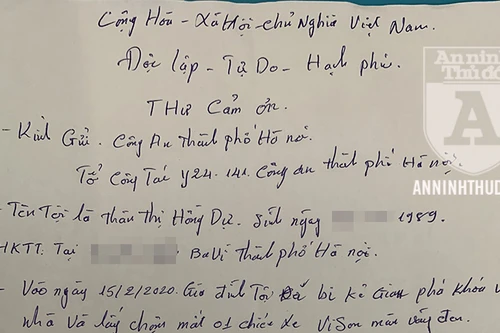 Cộng Hòa - Xã Hội - Chủ Nghĩa Việt Nam.
Độc lập - Tự Do - Hạnh phúc.
Thư Cảm ơn.
- Kính Gửi. Công An thành phố Hà nội.
Tổ Công Tác y24. 141. Công an thành phố Hà nội.
- Tên Tôi là Thân Thị Hồng Dự. Sinh ngày 1989.
HKTT. Tại Ba Vì thành phố Hà nội.
- Vào ngày 15/2/2020. Gia đình Tôi Đã bị kẻ Gian phá khóa v
nhà Và lấy trộm mất 01 chiếc xe Vision màu vàng đen.
An ninh
Thủ đô
A
ANNINHTHUD